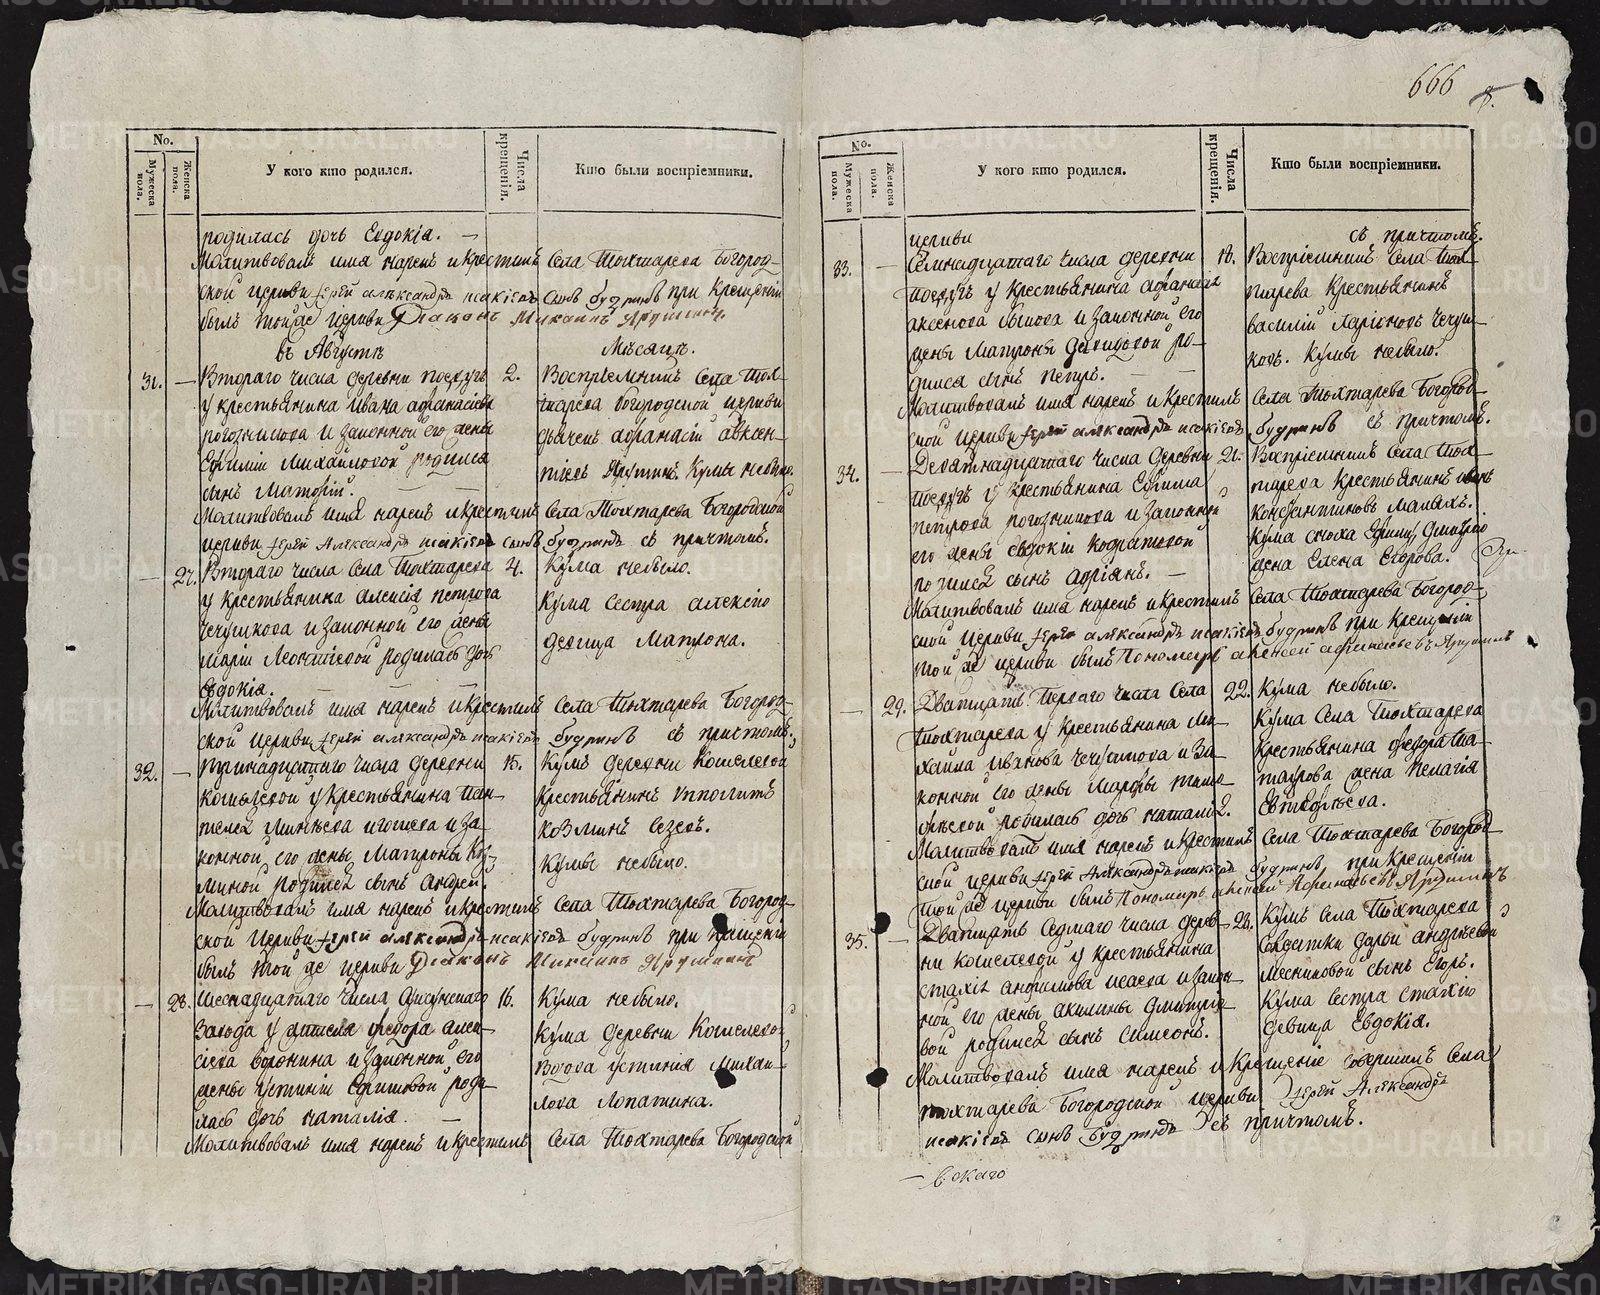 666
No.
Мужеска пола.
Женска пола.
У кого кто родился.
Числа крещенія.
Кто были воспріемники.
родилась дочь Евдокія.
Молитвовалъ имя нарекъ и крестилъ Села Тохтарева Богород-
ской церкви Іерей Александръ Исакіевъ сынъ Будринъ при крещеніи
былъ той же церкви Діаконъ Михаилъ Ярушинъ.
въ Августѣ Мѣсяцѣ.
31. Втораго числа деревни 2. Воспріемникъ Села Тох-
у крестьянина Ивана Афанасіева тарева Богородской церкви
погозникова и законной его жены дьячекъ Афанасій Авксен-
Ефиміи Михайловой родился тіевъ Ярушинъ. Кумы небыло.
сынъ
Молитвовалъ имя нарекъ и крестилъ Села Тохтарева Богородской
церкви Іерей Александръ Исакіевъ сынъ Будринъ съ причтомъ.
27. Втораго числа Села Тохтарева 4. Кума небыло.
у крестьянина Алексія Петрова Кума сестра Алексію
Чечушкова и законной его жены девица Матрона.
Маріи Леонтіевой родилась дочь
Евдокія.
Молитвовалъ имя нарекъ и крестилъ Села Тохтарева Богород-
ской церкви Іерей Александръ Исакіевъ Будринъ съ причтомъ.
32. числа деревни 15. Кумъ деревни Кошелевой
Кошелевой у крестьянина Пан- крестьянинъ Ипполитъ
телея и за- Козминъ
конной его жены Матроны Коз- Кумы небыло.
миной родился сынъ Андрей.
Молитвовалъ имя нарекъ и крестилъ Села Тохтарева Богород-
ской церкви Іерей Александръ Исакіевъ Будринъ при крещеніи
былъ той же церкви Діаконъ Михаилъ Ярушинъ
28. Шеснадцатаго числа 16. Кума небыло.
завода у Федора Алек- Кума деревни Кошелевой
сіева Воронина и законной его вдова Устинія Михай-
жены Устиніи Ефимовой роди- лова Лопатина.
лась дочь Наталія.
Молитвовалъ имя нарекъ и крестилъ Села Тохтарева Богородской
No.
Мужеска пола.
Женска пола.
У кого кто родился.
Числа крещенія.
Кто были воспріемники.
церкви съ причтомъ.
33. Семнадцатаго числа деревни 18. Воспріемникъ Села Тох-
у крестьянина Афанасія тарева крестьянинъ
Аксенова Быкова и законной его Василій Ларіоновъ Чечуш-
жены Матроны Давидовой ро- ковъ. Кумы небыло.
дился сынъ Петръ.
Молитвовалъ имя нарекъ и крестилъ Села Тохтарева Богород-
ской церкви Іерей Александръ Исакіевъ Будринъ съ причтомъ.
34. Девятнадцатаго числа деревни 21. Воспріемникъ Села Тох-
у крестьянина Ефима тарева крестьянинъ Иванъ
Петрова погозникова и законной Константиновъ
его жены Евдокіи Кодратовой Кума сноха Ефиму, Дмитрію
родился сынъ Адріянъ. жена Елена Егорова.
Молитвовалъ имя нарекъ и крестилъ Села Тохтарева Богород-
ской церкви Іерей Александръ Исакіевъ Будринъ при крещеніи
той же церкви былъ Пономарь Алексей Афанасьевъ Ярушинъ
29. Дватцать перваго числа Села 22. Кума небыло.
Тохтарева у крестьянина Ми- Кума Села Тохтарева
хаила Иванова Чечушкова и за- крестьянина Федора
конной его жены Марфы жена Пелагія
родилась дочь Наталія.
Молитвовалъ имя нарекъ и крестилъ Села Тохтарева Богород-
ской церкви Іерей Александръ Исакіевъ Будринъ при крещеніи
той же церкви былъ Пономарь Алексей Афанасьевъ Ярушинъ
35. Дватцать седмаго числа дерев- 28. Кумъ Села Тохтарева
ни Кошелевой у крестьянина солдатки Дарьи Андреевой
Стахія Исаева и закон- сынъ Егоръ.
ной его жены Акилины Дмитріе- Кума сестра Стахію
вой родился сынъ Симеонъ. девица Евдокія.
Молитвовалъ имя нарекъ и крещеніе совершилъ Села
Тохтарева Богородской церкви Іерей Александръ
Исакіевъ сынъ Будринъ съ причтомъ.
METRIKI.GASO-URAL.RU